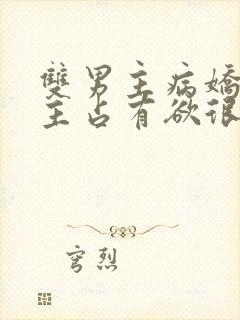 雙男主病嬌
主占有欲很
穹烈